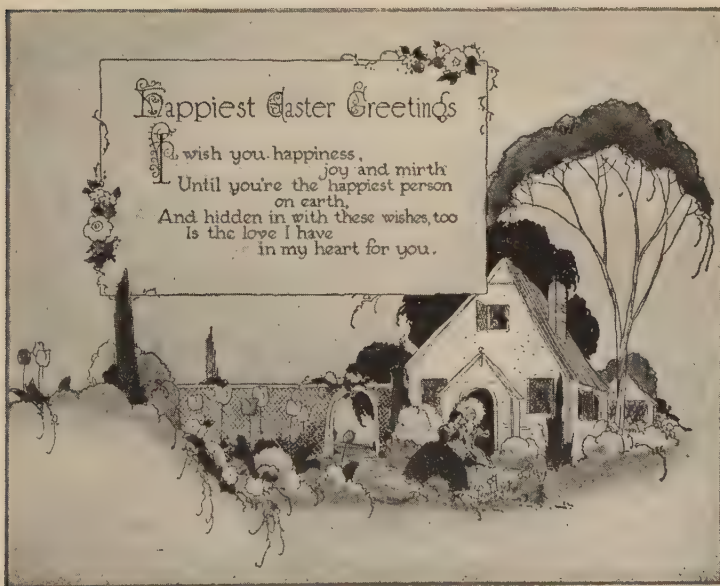 Happiest Easter Greetings
I wish you happiness,
joy and mirth
Until you're the happiest person
on earth,
And hidden in with these wishes, too
Is the love I have
in my heart for you.